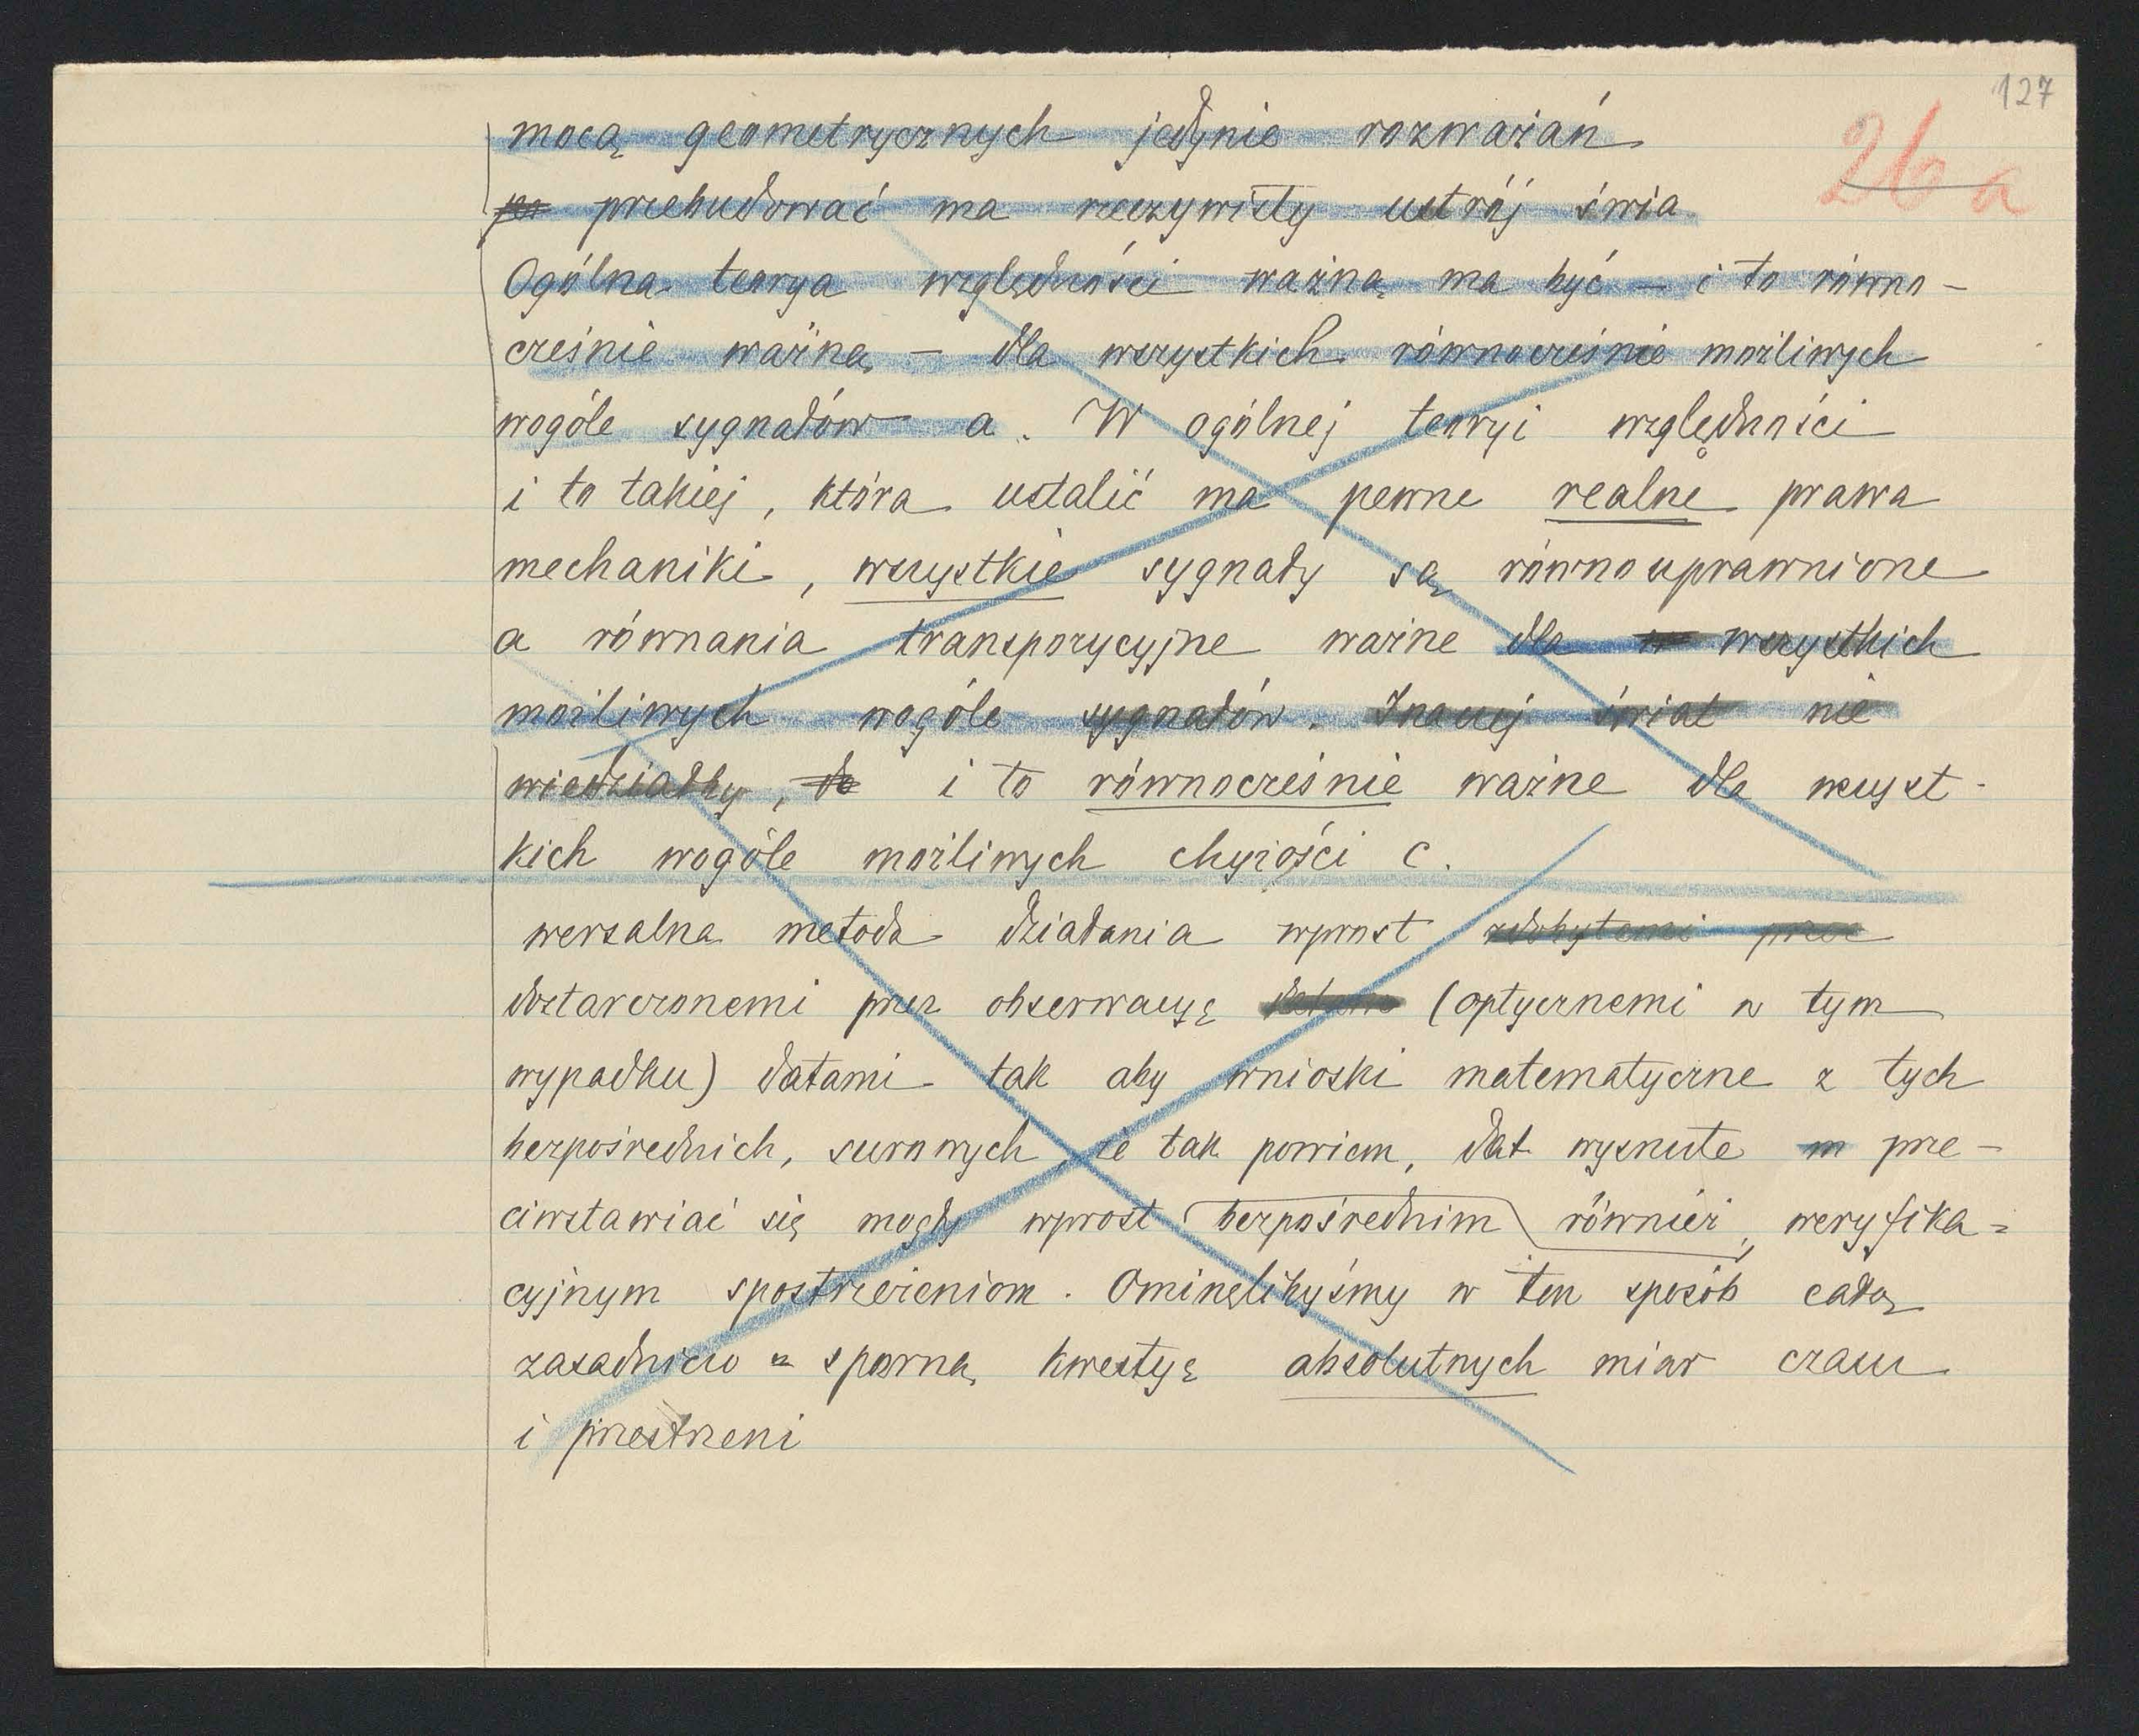 127
26a
mocą geometrycznych jedynie rozważań
po przebudować ma rzeczywisty ustrój świa
Ogólna teorya względności ważną ma być – i to równo-
cześnie ważną – dla wszystkich równocześnie możliwych
wogóle sygnałów a. W ogólnej teoryi względności
i to takiej, która ustalić ma pewne realne prawa
mechaniki, wszystkie sygnały są równouprawnione
a równania transpozycyjne ważne dla w wszystkich
możliwych wogóle sygnałów. Inaczej świat nie
wiedziałby, do i to równocześnie ważne dla wszyst-
kich wogóle możliwych chyżości c.
wersalna metoda działania wprost zdobytemi przez
dostarczonemi przez obserwacyę (optycznemi w tym
wypadku) datami tak aby wnioski matematyczne z tych
bezpośrednich, surowych, że tak powiem, dat wysnute m prze-
ciwstawiać się mogły wprost bezpośrednim również, weryfika=
cyjnym spostrzeżeniom. Ominęlibyśmy w ten sposób całą
zasadniczo = sporną kwestyę absolutnych miar czasu
i przestrzeni